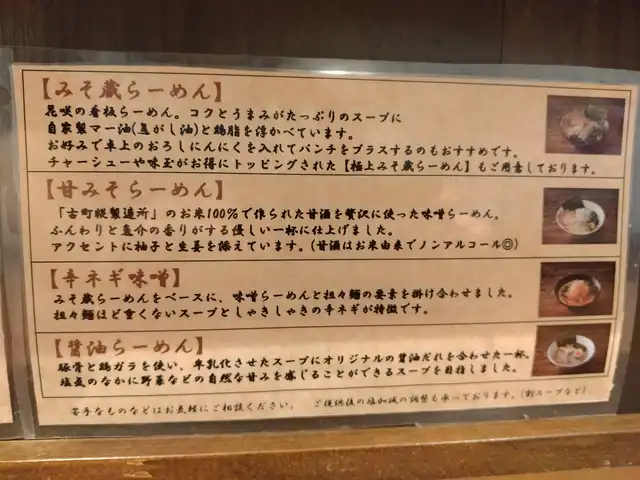 【みそ蔵らーめん】
花咲の看板らーめん。コクとうまみがたっぷりのスープに
自家製マー油(焦がし油)と鶏脂を浮かべています。
お好みで卓上のおろしにんにくを入れてパンチをプラスするのもおすすめです。
チャーシューや味玉がお得にトッピングされた【極上みそ蔵らーめん】もご用意しております。
【甘みそらーめん】
「古町糀製造所」のお米100%で作られた甘酒を贅沢に使った味噌らーめん。
ふんわりと魚介の香りがする優しい一杯に仕上げました。
アクセントに柚子と生姜を添えています。(甘酒はお米由来でノンアルコール◎)
【辛ネギ味噌】
みそ蔵らーめんをベースに、味噌らーめんと担々麺の要素を掛け合わせました。
担々麺ほど重くないスープとしゃきしゃきの辛ネギが特徴です。
【醤油らーめん】
豚骨と鶏ガラを使い、半乳化させたスープにオリジナルの醤油だれを合わせた一杯。
塩気のなかに野菜などの自然な甘みを感じることができるスープを目指しました。
苦手なものなどはお気軽にご相談ください。 ご提供後の塩加減の調整も承っております。(割スープなど)